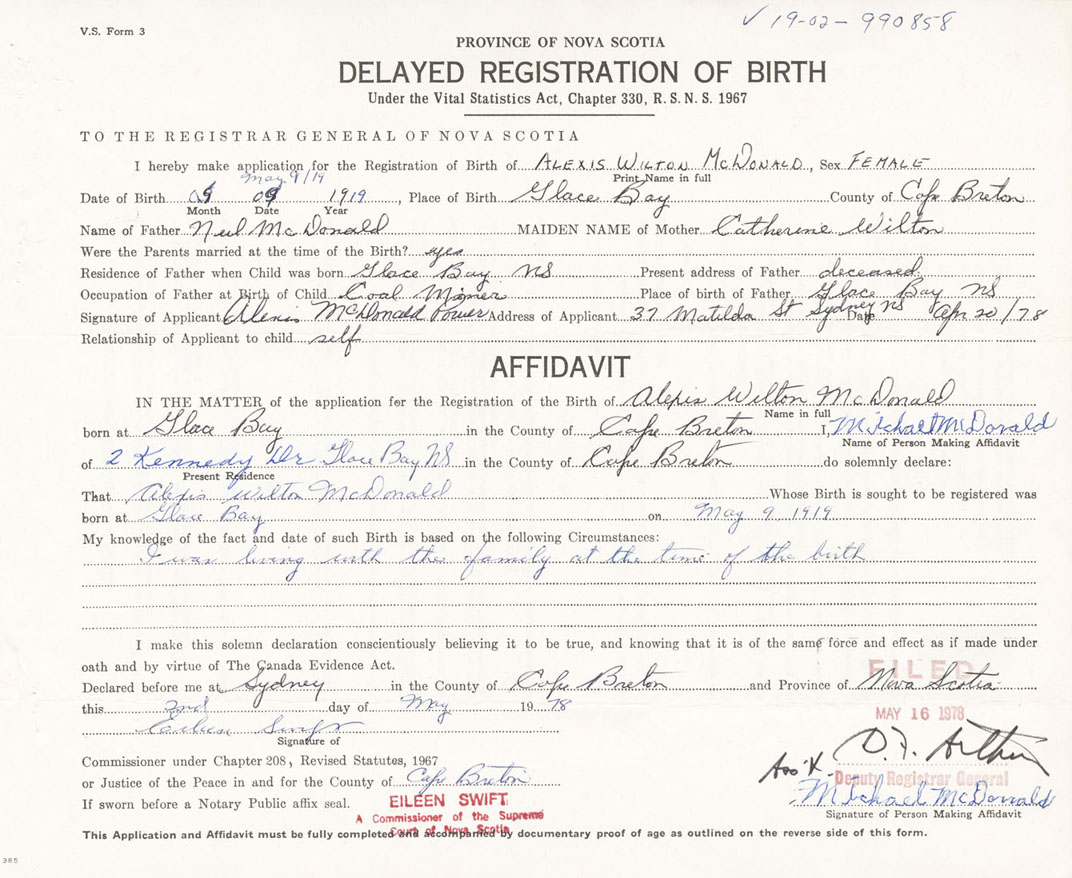 V.S. Form 3
✓ 19-02-990858
PROVINCE OF NOVA SCOTIA
DELAYED REGISTRATION OF BIRTH
Under the Vital Statistics Act, Chapter 330, R. S. N. S. 1967
TO THE REGISTRAR GENERAL OF NOVA SCOTIA
I hereby make application for the Registration of Birth of ALEXIS WILTON MCDONALD, Sex FEMALE
Print Name in full
May 9/19
Date of Birth 09 1919, Place of Birth Glace Bay County of Cape Breton
Month Date Year
Name of Father Neil McDonald MAIDEN NAME of Mother Catherine Wilton
Were the Parents married at the time of the Birth? yes
Residence of Father when Child was born Glace Bay NS Present address of Father deceased
Occupation of Father at Birth of Child Coal Miner Place of birth of Father Glace Bay NS
Signature of Applicant Alexis McDonald Power Address of Applicant 37 Matilda St Sydney NS Date Apr 20/78
Relationship of Applicant to child self
AFFIDAVIT
IN THE MATTER of the application for the Registration of the Birth of Alexis Wilton McDonald
Name in full
born at Glace Bay in the County of Cape Breton I, Michael McDonald
Name of Person Making Affidavit
of 2 Kennedy Dr Glace Bay NS in the County of Cape Breton do solemnly declare:
Present Residence
That Alexis Wilton McDonald Whose Birth is sought to be registered was
born at Glace Bay on May 9 1919
My knowledge of the fact and date of such Birth is based on the following Circumstances:
I was living with the family at the time of the birth
I make this solemn declaration conscientiously believing it to be true, and knowing that it is of the same force and effect as if made under
oath and by virtue of The Canada Evidence Act.
FILED
Declared before me at Sydney in the County of Cape Breton and Province of Nova Scotia
this 2nd day of May 1978
MAY 16 1978
Eileen Swift
Signature of
D.F. Arthur
Commissioner under Chapter 208, Revised Statutes, 1967
or Justice of the Peace in and for the County of Cape Breton
Deputy Registrar General
Michael McDonald
If sworn before a Notary Public affix seal.
EILEEN SWIFT
A Commissioner of the Supreme
Court of Nova Scotia
Signature of Person Making Affidavit
This Application and Affidavit must be fully completed and accompanied by documentary proof of age as outlined on the reverse side of this form.
385